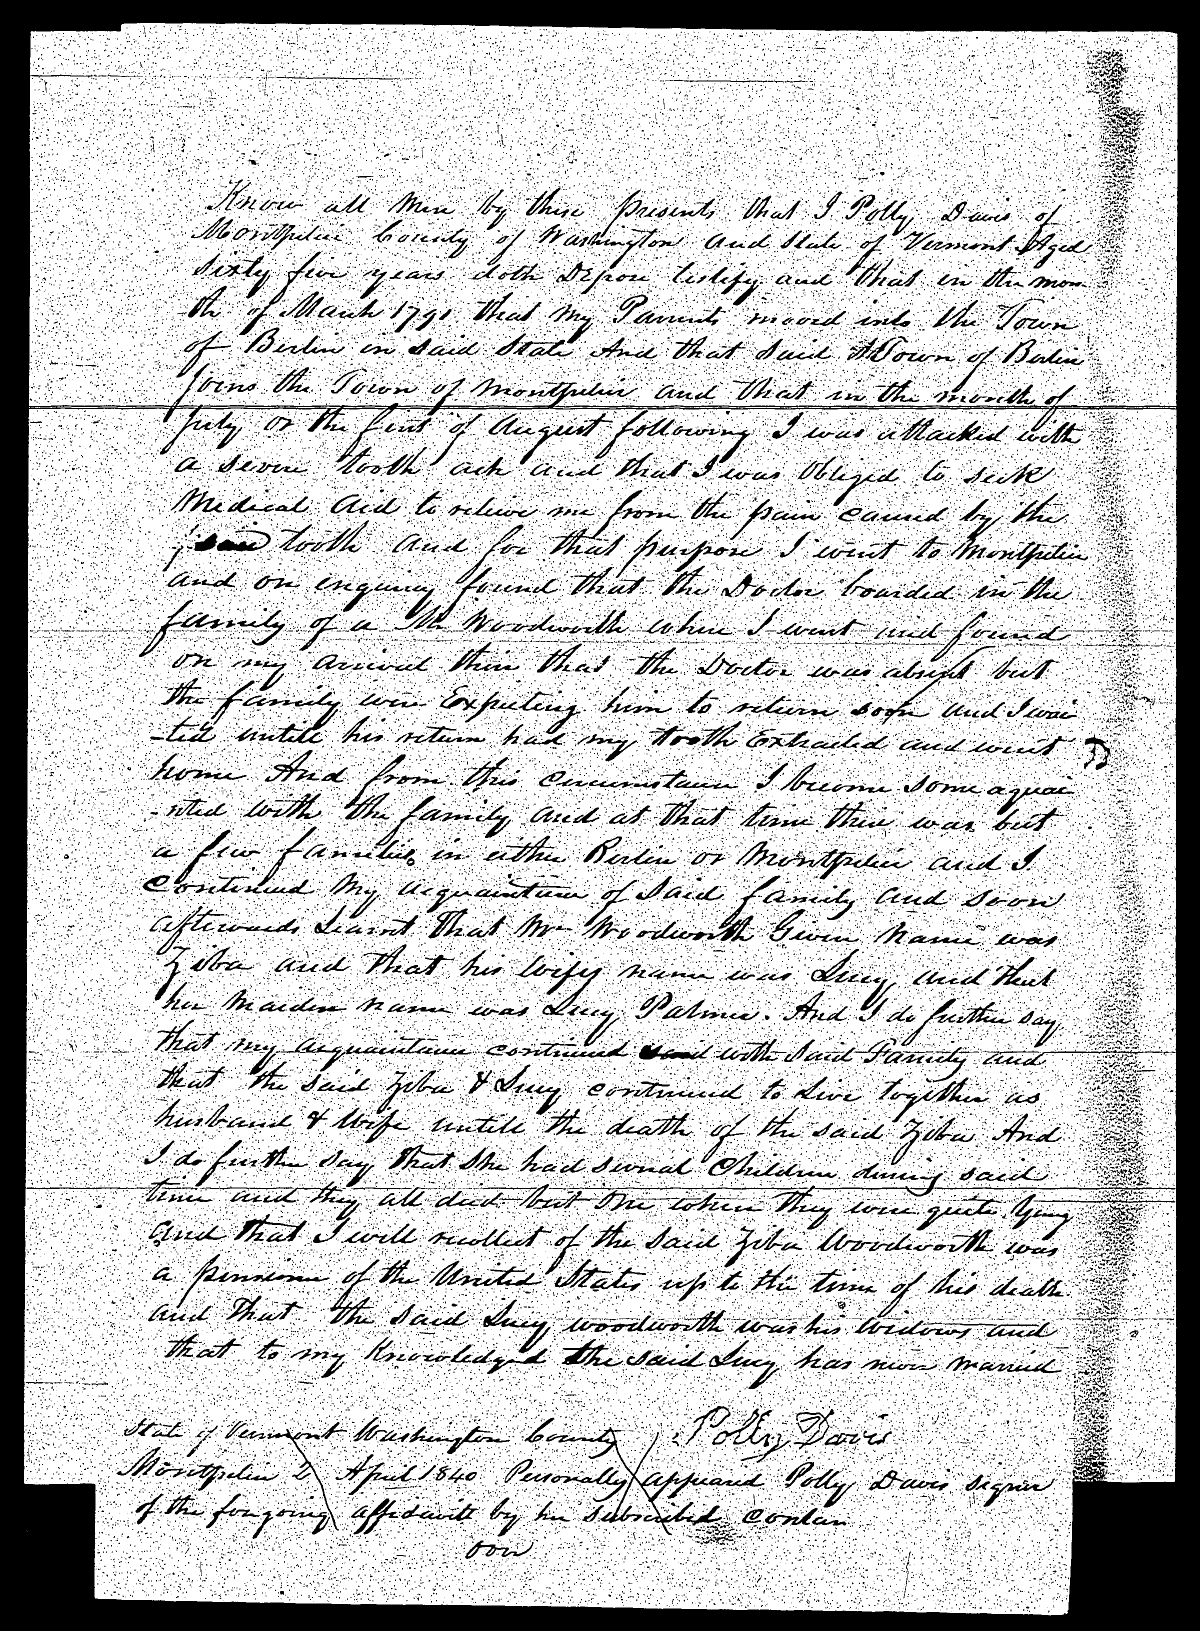 Know all Men by these presents that I Polly Davis of
Montpelier County of Washington and State of Vermont Aged
sixty five years doth Depose testify and that in the mon
-th of March 1790 that my Parents moved into the Town
of Berlin in said State And that said Town of Berlin
Joins the Town of Montpelier and that in the month of
July or the first of August following I was attacked with
a severe tooth ach and that I was Obliged to seek
Medical Aid to relieve me from the pain caused by the
said tooth and for that purpose I went to Montpelier
and on enquiry found that the Doctor boarded in the
family of a Mr Woodworth where I went and found
on my arrival their that the Doctor was absent but
the family were Expecting him to return soon and I wai
-ted untill his return had my tooth Extracted and went
home And from this Circumstance I become some aquai
-nted with the family and at that time their was but
a few families in either Berlin or Montpelier and I
Continued My acquaintance of Said family and soon
afterwards Learnt that Mr Woodworth Given Name was
Ziba and that his Wifes name was Lucy and that
her Maiden name was Lucy Palmer. And I do further say
that my acquaintance continued with Said Family and
that the said Ziba & Lucy continued to Live together as
husband & Wife untill the death of the said Ziba And
I do further say that She had several Children during said
time and they all died but One when they were quite Young
and that I well recollect of the said Ziba Woodworth was
a pensioner of the United States up to the time of his death
and that the said Lucy woodworth was his widow and
that to my Knowledge the said Lucy has never married
Polly Davis
State of Vermont Washington County
Montpelier 2 April 1840 Personally appeared Polly Davis signer
of the foregoing affidavit by her subscribed